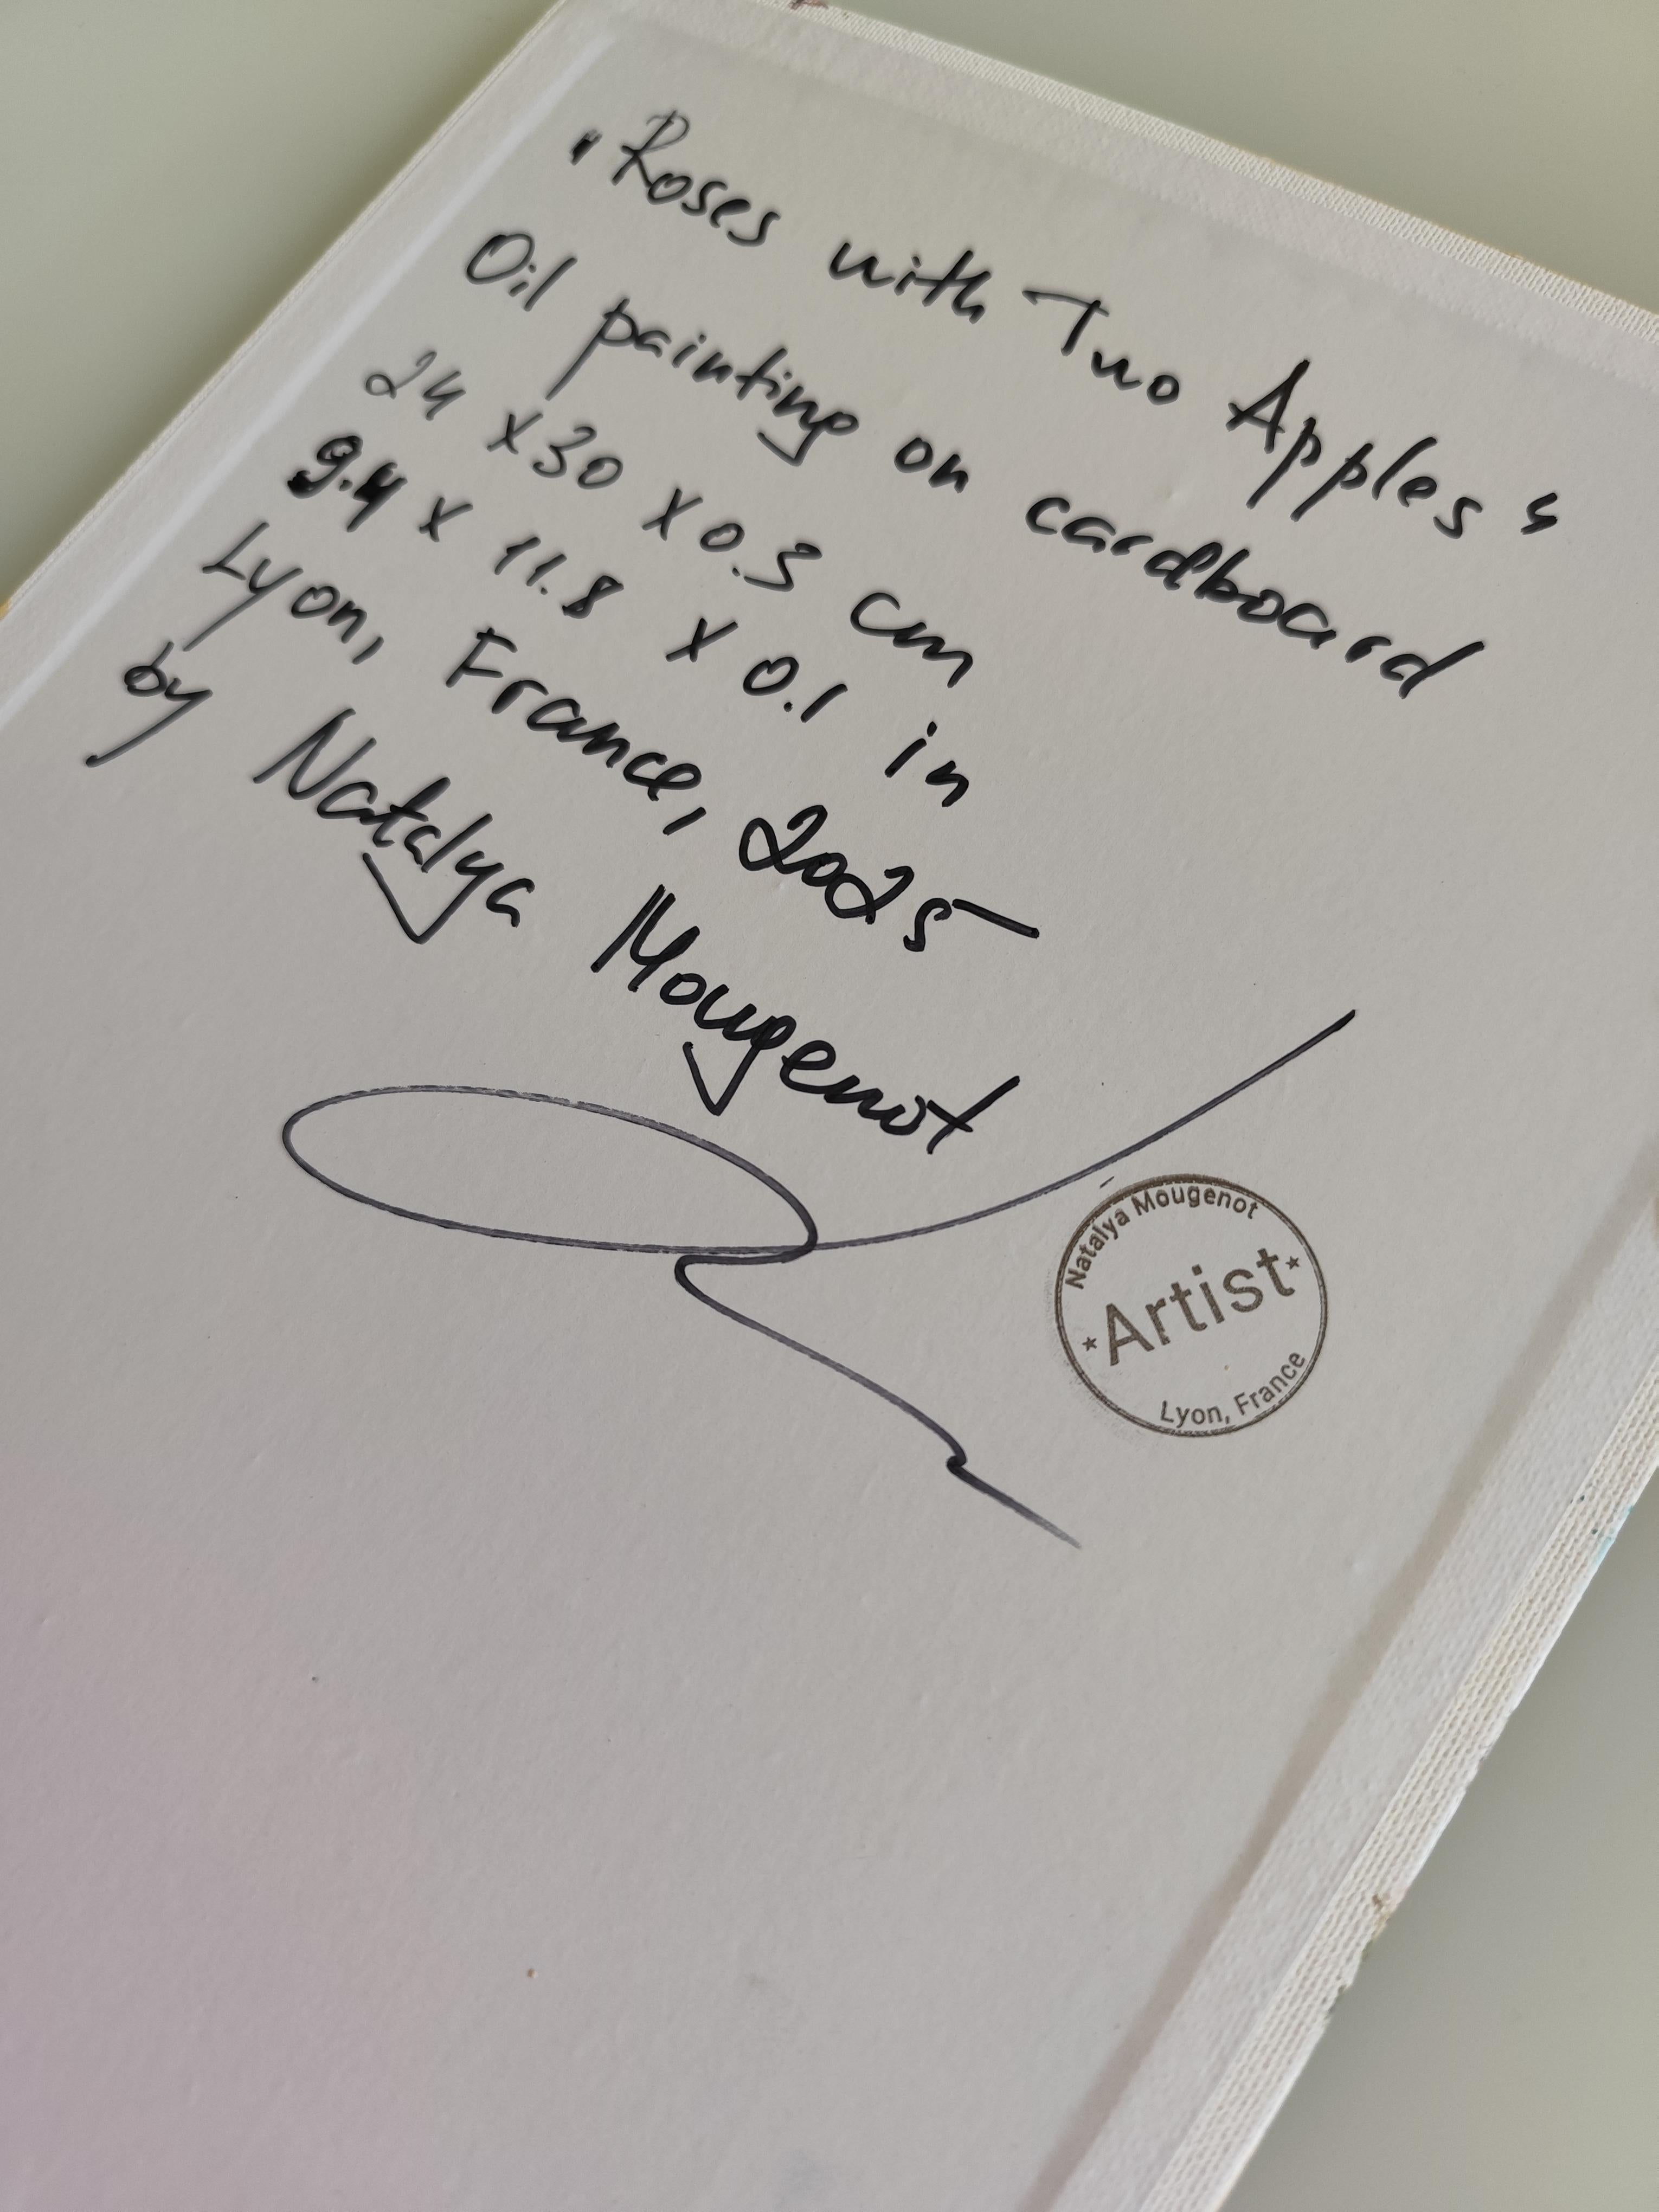 "Roses with Two Apples"
Oil painting on cardboard
24 x 30 x 0.3 cm
9.4 x 11.8 x 0.1 in
Lyon, France, 2025
by Natalya Mougenot
Natalya Mougenot
*Artist*
Lyon, France